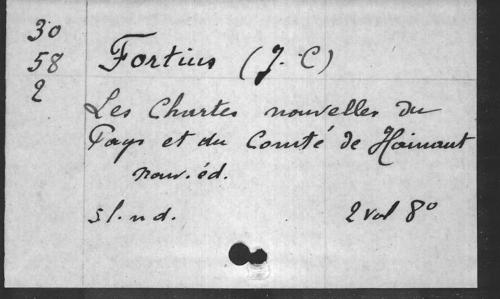 30
58
2
Fortius (J. C)
Les Chartes nouvelles du
Pays et du Comté de Hainaut
nouv. éd.
sl. nd. 2 vol 8º